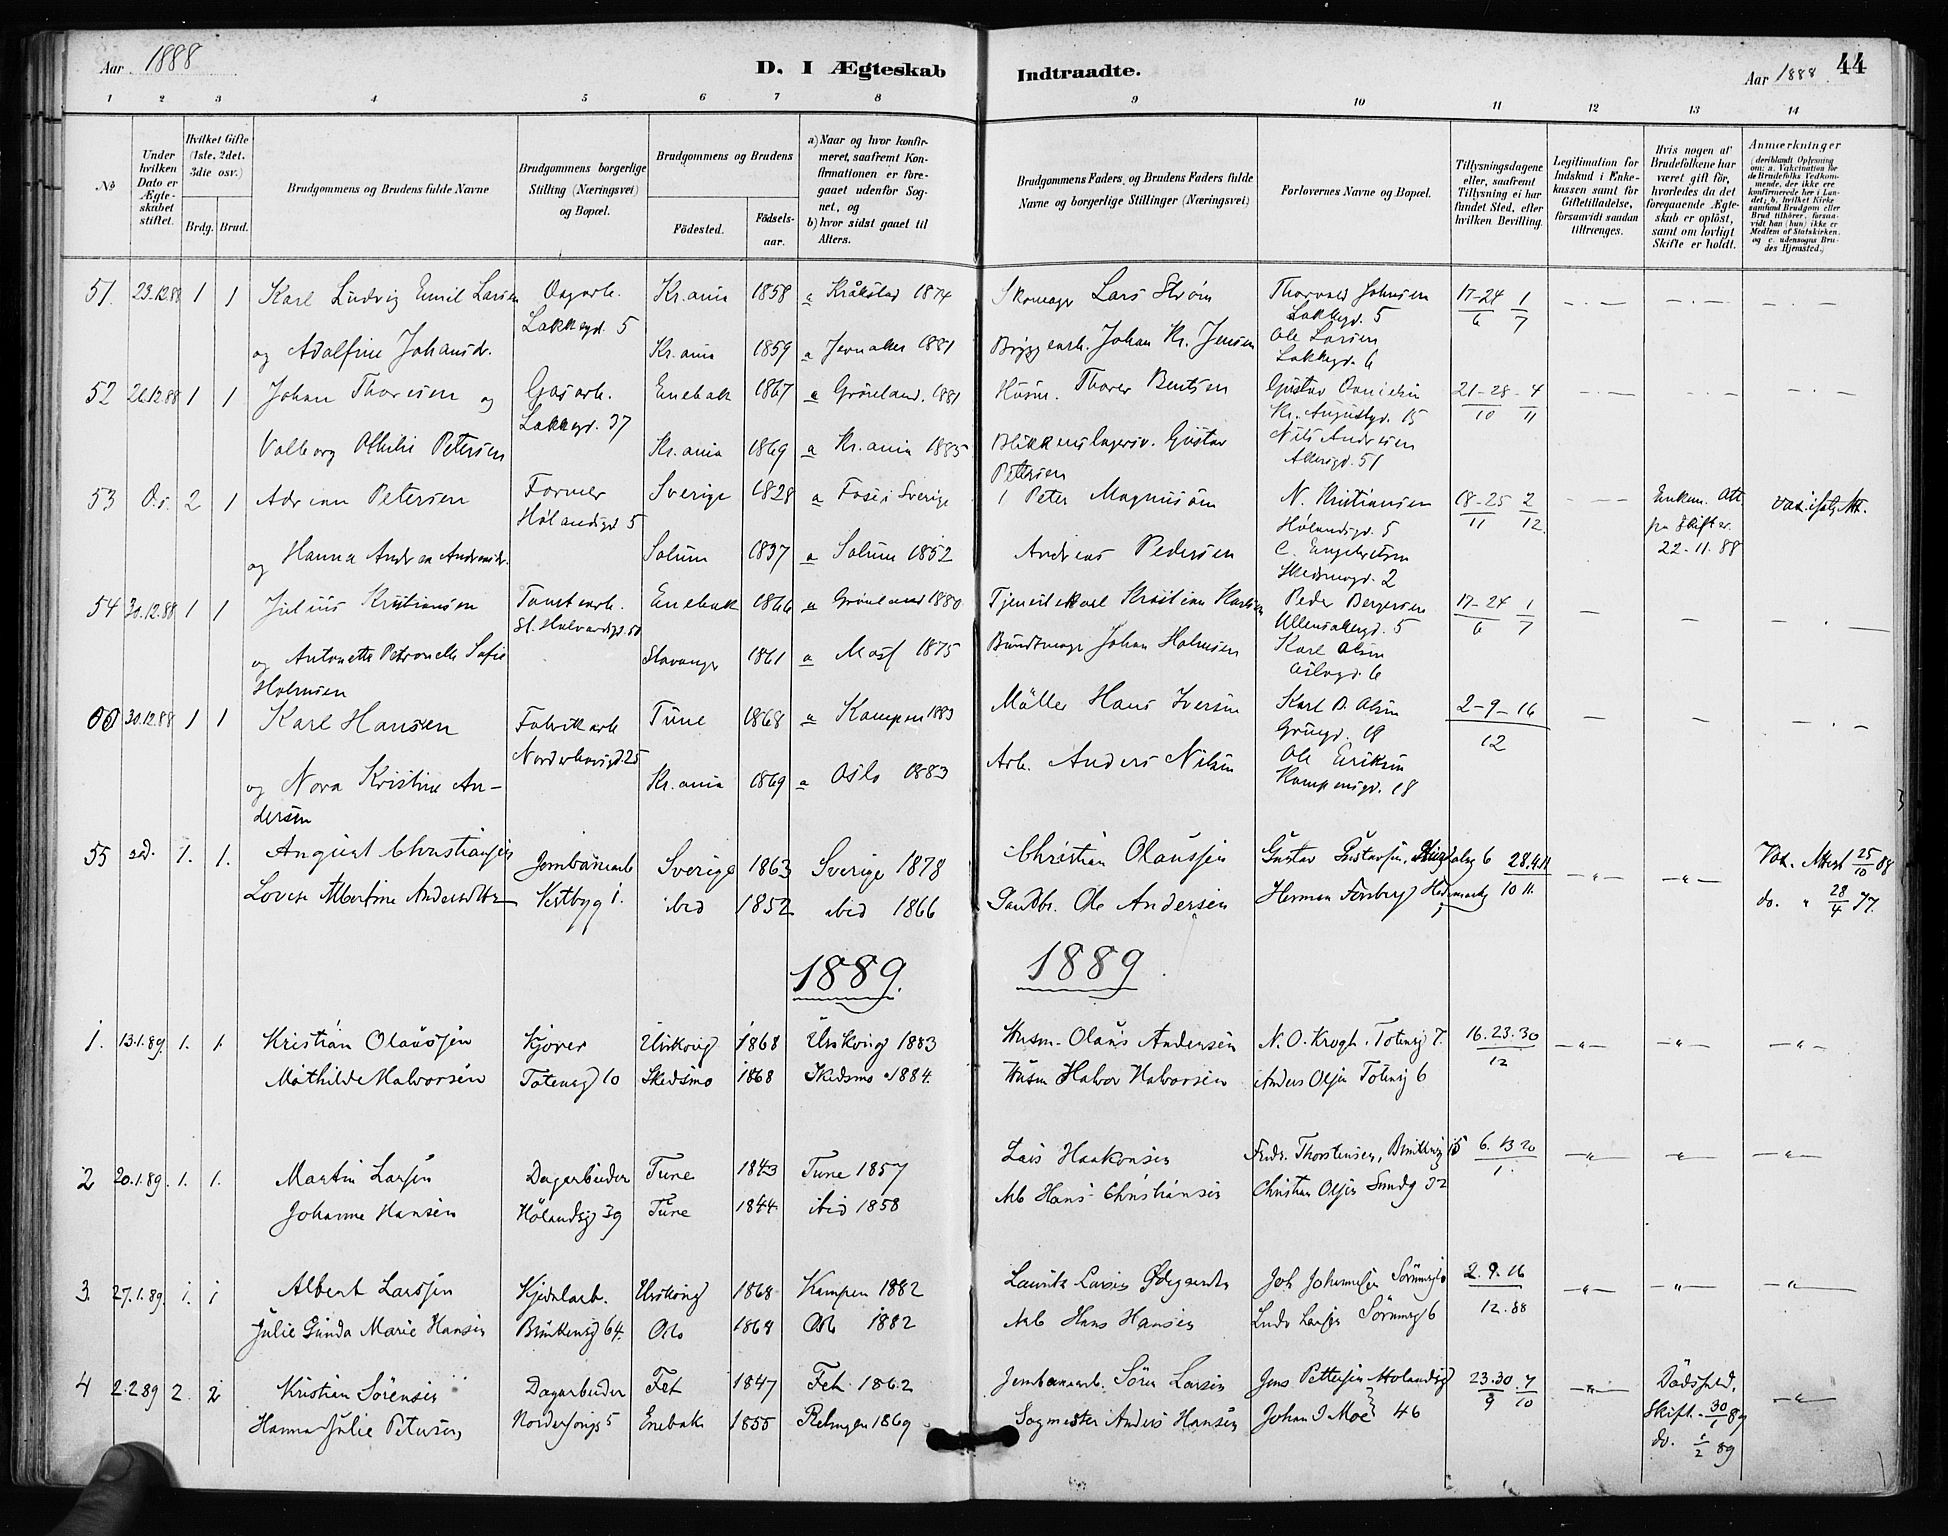 Aar 1888
D. I Ægteskab
Indtraadte.
Aar 1888
44
1 2 3 4 5 6 7 8 9 10 11 12 13 14
№
Under hvilken Dato er Ægteskabet stiftet.
Hvilket Gifte (1ste, 2det, 3die osv.)
Brdg. Brud.
Brudgommens og Brudens fulde Navne
Brudgommens borgerlige Stilling (Næringsvei) og Bopæl.
Brudgommens og Brudens
Fødested.
Fødselsaar.
a) Naar og hvor konfirmeret, saafremt Konfirmationen er foregaaet udenfor Sognet, og
b) hvor sidst gaaet til Alters.
Brudgommens Faders, og Brudens Faders fulde Navne og borgerlige Stillinger (Næringsvei)
Forlovernes Navne og Bopæl.
Tillysningsdagene eller, saafremt Tillysning ei har fundet Sted, efter hvilken Bevilling.
Legitimation for Indskud i Enkekassen samt for Giftetilladelse, forsaavidt saadan tiltrænges.
Hvis nogen af Brudefolkene har været gift før, hvorledes da det foregaaende Ægteskab er opløst, samt om lovligt Skifte er holdt.
Anmærkninger
(deriblandt Oplysning om: a. Vakcination for de Brudefolks Vedkommende, der ikke ere konfirmerede her i Landet; b. hvilket Kirkesamfund Brudgom eller Brud tilhører, forsaavidt han (hun) ikke er Medlem af Statskirken, og c. udensogns Brudes Hjemsted.)
51. 23.12.88 1 1 Karl Ludvig Emil Larsen Dagarb. Kr.ania 1858 a Kråkstad 1874 Skomager Lars Strøm Thorvald Johnsen 17-24 1
Lakkegd. 5 Lakkegd. 5 6 7
og Adolfine Johansdr. Kr.ania 1859 a Jevnaker 1881 Bryggearb. Johan Kr. Jensen Ole Larsen
Lakkegd. 6
52 26.12.88 1 1 Johan Thoresen og Gasarb. Enebak 1867 a Grønland. 1881 Husm. Thorer Bentsen Gustav Danielsen 21-28-4
Lakkegd. 37 Kr. Augustgd. 15 10 11
Valborg Othilie Petersen Kr.ania 1869 a Kr.ania 1885 Blikkenslagersv. Gustav Nils Andersen
Pettersen Akersgd. 51
53 D.s. 2 1 Adrian Petersen Former Sverige 1828 a Foss i Sverige Peter Magnusson N. Kristiansen 18-25 2 Enkem. Att. Vac. ifølg Att.
Hølandsgd 5 Hølandsgd. 5 11 12 pr Skift er.
og Hanna Andrea Andersdr. Solum 1837 a Solum 1852 Andreas Pedersen C. Engebretsen 22-11-88
Hedemgd. 2
54 30.12.88 1 1 Julius Kristiansen Tomtearb. Enebak 1866 a Grønland 1880. Tjenestekarl Kristian Karlsen Peder Bergersen 17-24 1
St. Halvardsgd. Ullensakergd. 5 6 7
og Antonette Petronelle Sofie Stavanger 1861 a Moss 1875 Bundtmager Johan Holmsen Karl Olsen
Holmsen Oslogd. 6
30.12.88 1 1 Karl Hansen Fabrikarb Tune 1868 a Kampen 1883 Møller Hans Iversen Karl D. Olsen 2-9-16
Norderhovsgd. 25 12
og Nora Kristine An- Kr.ania 1869 a Oslo 1883 Arb. Anders Nilsen Ole Eriksen
dersen Kampensgd. 18
55 sd. 1. 1. August Christiansen Jernbanearb Sverige 1863 Sverige 1878 Christian Olaussen Gustav Gustavsen 6 28.4.11 Vac. Attest 25/10 88
Lovise Albertine Andersdtr Vestbyg 1. ibid 1852 ibid 1866 Ole Andersen Herman Forsberg 10 11 do. " 28/4 77.
1889.
1889.
1. 13.1.89. 1. 1. Kristian Olaussen Kjører Urskoug 1868 Urskoug 1883 Husm. Olaus Andersen N. O. Krogh. Totensg 7. 16.23.30
Mathilde Halvorsen Totensg 10 Skedsmo 1868 Skedsmo 1884. Husm Halvor Halvorsen Anders Olsen Totensg 6 12
2 20.1.89. 1. 1. Martin Larsen Dagarbeider Tune 1843 Tune 1857 Lars Haakonsen Fredr. Thorstensen, 6.13.20
Johanne Hansen Hølandsg 39 Tune 1844 ibid 1858 Arb Hans Christiansen Christian Olsen 32 1.
3. 27.1.89. 1. 1 Albert Larssen Kjedelarb. Urskoug 1868 Kampen 1882 Laurits Larsen Ødegaarden Joh Johannesen Sørumsg 6 2.9.16
Julie Gunda Marie Hansen 64. Oslo 1868 Oslo 1882 Arb Hans Hansen Ludv Larsen Sørumsg 6 12.88
4 2.2 89 2. 2 Kristian Sørensen Dagarbeider Fet 1847 Fet 1862 Jernbanearb. Søren Larsen Jens Pettersen Hølandsg 23.30 7 Dødsfald.
Hanna Julie Petersen 5 Enebak 1855 Rælingen 1869 Sagmester Anders Hansen Johan J Moe 46 9 10 Skift. 30/1 89
do. 1/2 89